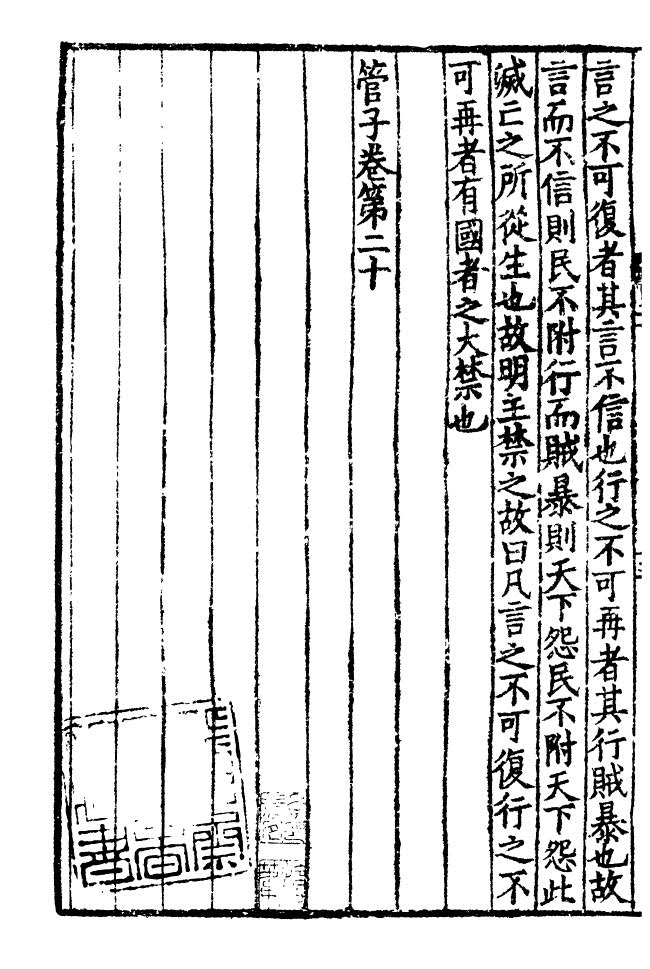 言之不可復者其言不信也行之不可再者其行賊暴也故
言而不信則民不附行而賊暴則天下怨民不附天下怨此
滅亡之所從生也故明主禁之故曰凡言之不可復行之不
可再者有國者之大禁也
管子卷第二十